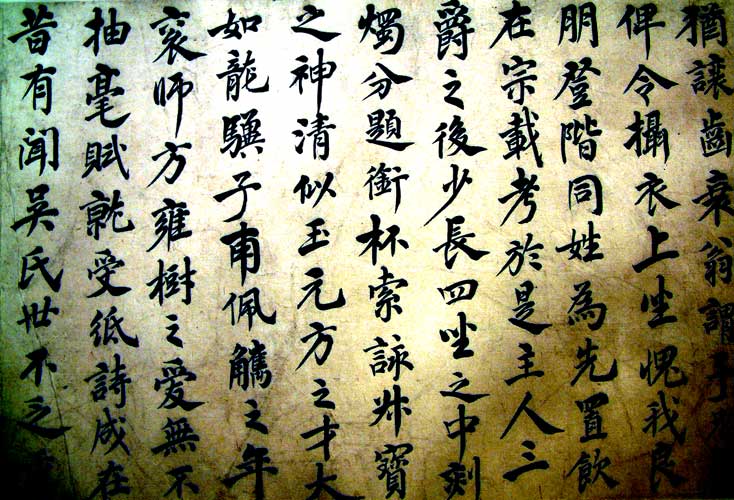 猶讓齒衰翁謂予
俾令攝衣上坐愧我良
朋登階同姓為先置飲
在宗載考於是主人三
爵之後少長四坐之中刻
燭分題銜杯索詠叔寶
之神清似玉元方之才大
如龍驥子甫佩觿之年
袞師方雍樹之愛無不
抽毫賦就受紙詩成在
昔有聞吳氏世不乏